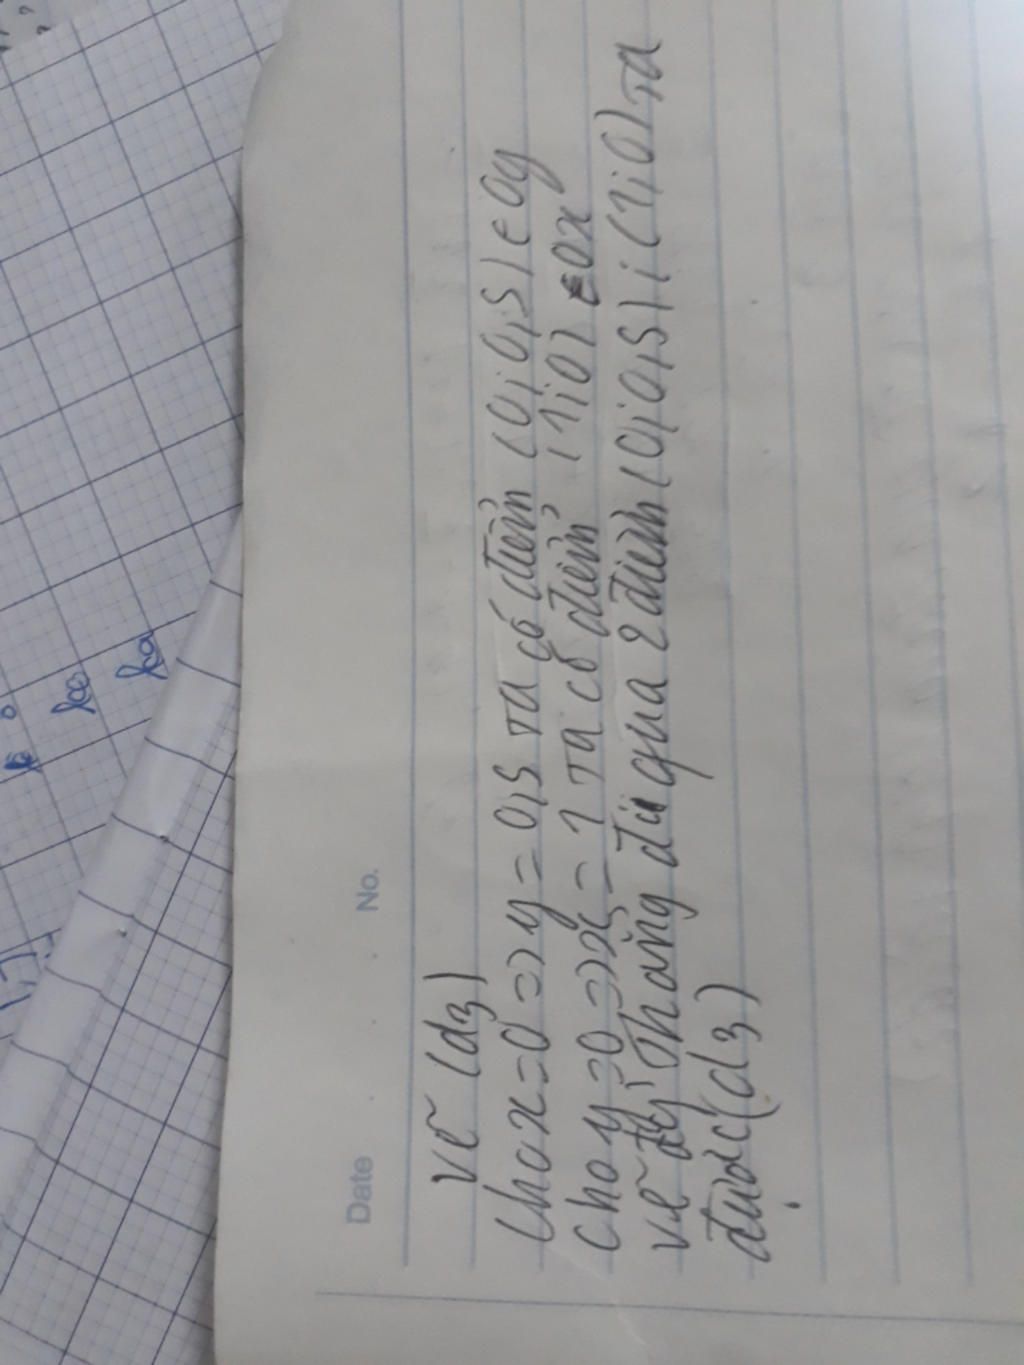 Date No.
vẽ (d3)
Cho x=0 => y = 0,5 ta có điểm (0;0,5) ∈ Oy
Cho y=0 => x = 1 ta có điểm (1;0) ∈ Ox
vẽ thẳng đi qua 2 điểm (0;0,5) ; (1;0) ta
được (d3)